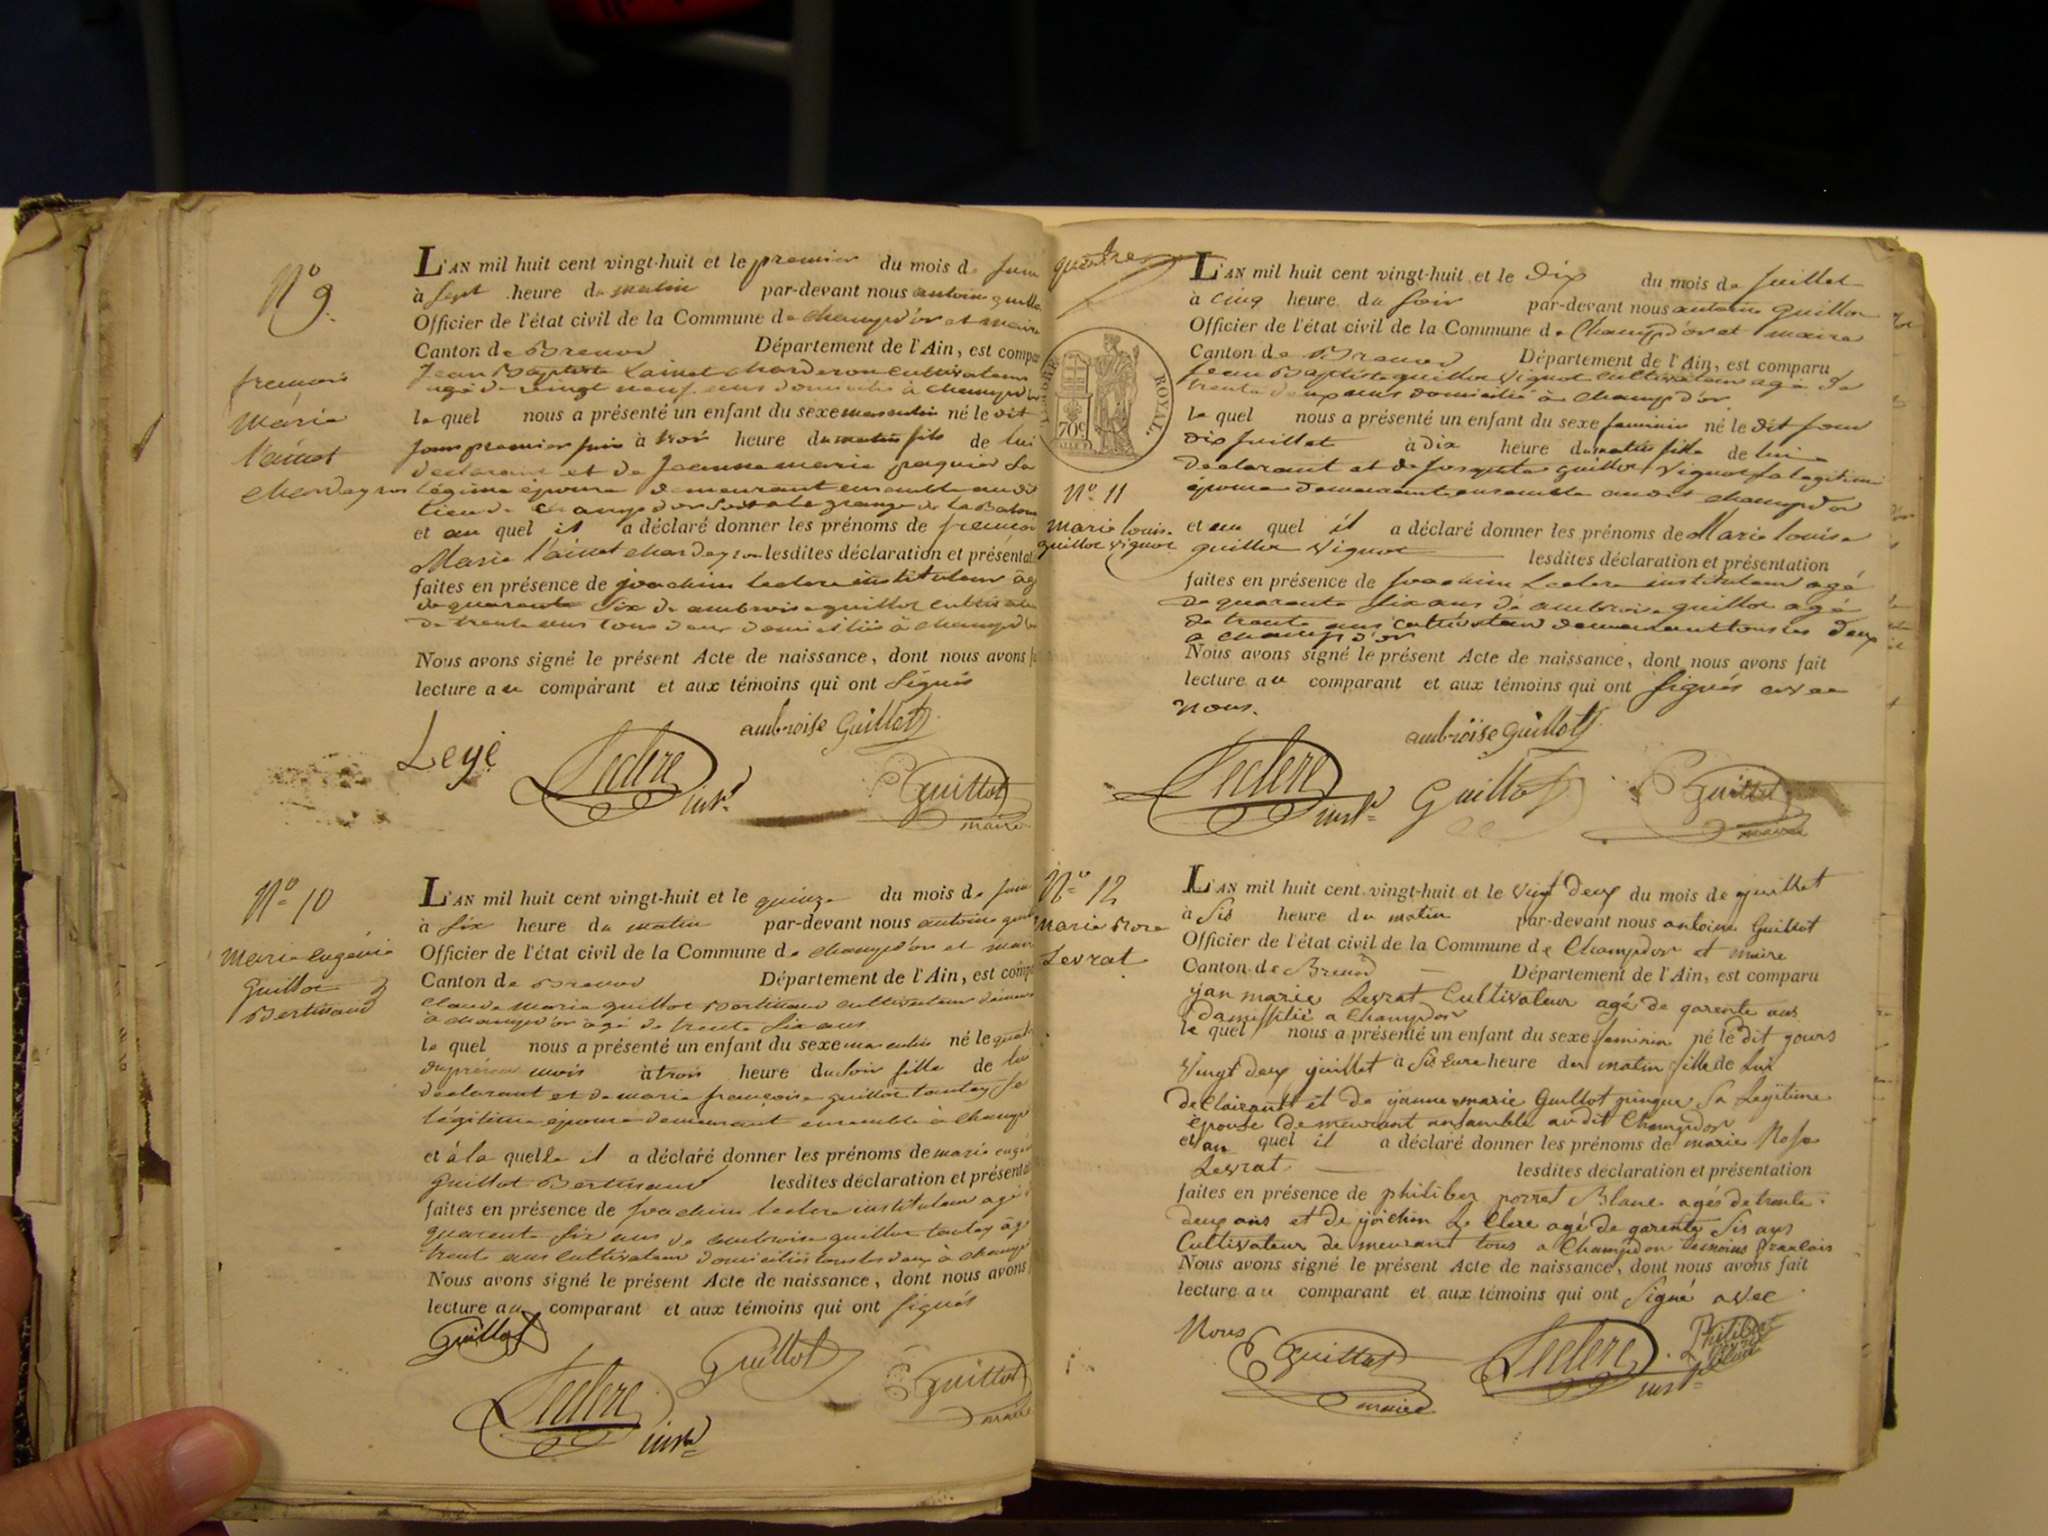 N° 9.
françois
Marie
Lainet
chardeyron
L'AN mil huit cent vingt-huit et le premier du mois de Juin
à sept heure du matin par-devant nous antoine guillo
Officier de l'état civil de la Commune de champd'or et maire
Canton de Brenod Département de l'Ain, est compar
Jean Baptiste Lainet chardeyron cultivateur
agé de vingt neuf ans domicilié à champd'or
le quel nous a présenté un enfant du sexe masculin né le dit
Jour premier Juin à trois heure du matin fils de lui
déclarant et de Jeanne marie paquier sa
légitime épouse demeurant ensemble au dit
lieu de champdor
et au quel il a déclaré donner les prénoms de françois
Marie Lainet chardeyron lesdites déclaration et présentat
faites en présence de joachim leclerc instituteur âg
de quarante six de ambroise guillot cultivateur
de trente ans tous deux domiciliés à champd'or
Nous avons signé le présent Acte de naissance, dont nous avons f
lecture au comparant et aux témoins qui ont signés
ambroise Guillot
Leyé
Leclerc
inst.r
Guillot
maire
N° 10
marie eugénie
Guillot
Bertinand
L'AN mil huit cent vingt-huit et le quinze du mois de Juin
à six heure du matin par-devant nous antoine guil
Officier de l'état civil de la Commune de champd'or et mair
Canton de Brenod Département de l'Ain, est comp
Claude Marie guillot Bertinand cultivateur demeu
à champd'or agé de trente six ans
le quel nous a présenté un enfant du sexe masculin né le quat
du présent mois à trois heure du soir fille de lui
déclarant et de marie françoise guillot tantey sa
légitime épouse demeurant ensemble à champ
et à la quelle il a déclaré donner les prénoms de marie eugé
guillot Bertinand lesdites déclaration et présentat
faites en présence de Joachim leclerc instituteur agé
quarante six ans de ambroise guillot tantey âgé
trente ans cultivateur domiciliés tous les deux à champd
Nous avons signé le présent Acte de naissance, dont nous avons
lecture au comparant et aux témoins qui ont signés
Guillot
Guillot
Leclerc
inst.r
Guillot
maire
quatre
TIMBRE ROYAL.
70c
N° 11
Marie louise
guillot vignot
L'AN mil huit cent vingt-huit et le dix du mois de Juillet
à cinq heure du soir par-devant nous antoine guillot
Officier de l'état civil de la Commune de Champd'or et maire
Canton de Brenod Département de l'Ain, est comparu
Jean Baptiste guillot vignot cultivateur agé de
trente deux ans domicilié à champd'or
le quel nous a présenté un enfant du sexe feminin né le dit jour
dix Juillet à dix heure du matin fille de lui
déclarant et de Josephte guillot vignot sa legitime
épouse demeurant ensemble audit champd'or
et au quel il a déclaré donner les prénoms de Marie louise
guillot vignot lesdites déclaration et présentation
faites en présence de Joachim Leclerc instituteur agé
de quarante six ans de ambroise guillot agé
de trente ans cultivateur demeurant tous les deux
à champd'or
Nous avons signé le présent Acte de naissance, dont nous avons fait
lecture au comparant et aux témoins qui ont signés avec
nous.
ambroise Guillot
Leclerc
inst.r
Guillot
Guillot
maire
N° 12
Marie Rose
Levrat
L'AN mil huit cent vingt-huit et le vingt deux du mois de guillet
à sis heure du matin par-devant nous antoine Guillot
Officier de l'état civil de la Commune de Champdor et maire
Canton de Brenod Département de l'Ain, est comparu
yan marie Levrat Cultivateur agé de garente ans
damissilié a Champdor
le quel nous a présenté un enfant du sexe feminin né le dit gours
vingt deux guillet à sis eure heure du matin fille de Lui
declairant et de yanne marie Guillot pingue sa Legitime
épouse demeurant ansamble audit Champdor
et au quel il a déclaré donner les prénoms de marie Rose
Levrat lesdites déclaration et présentation
faites en présence de philiber porret Blanc agés de trante
deux ans et de joichin Le Clerc agé de garente sis ans
Cultivateur demeurant tous a Champdor temoins francais
Nous avons signé le présent Acte de naissance, dont nous avons fait
lecture au comparant et aux témoins qui ont signé avec
Nous
Guillot
maire
Leclerc
inst.r
Philiber